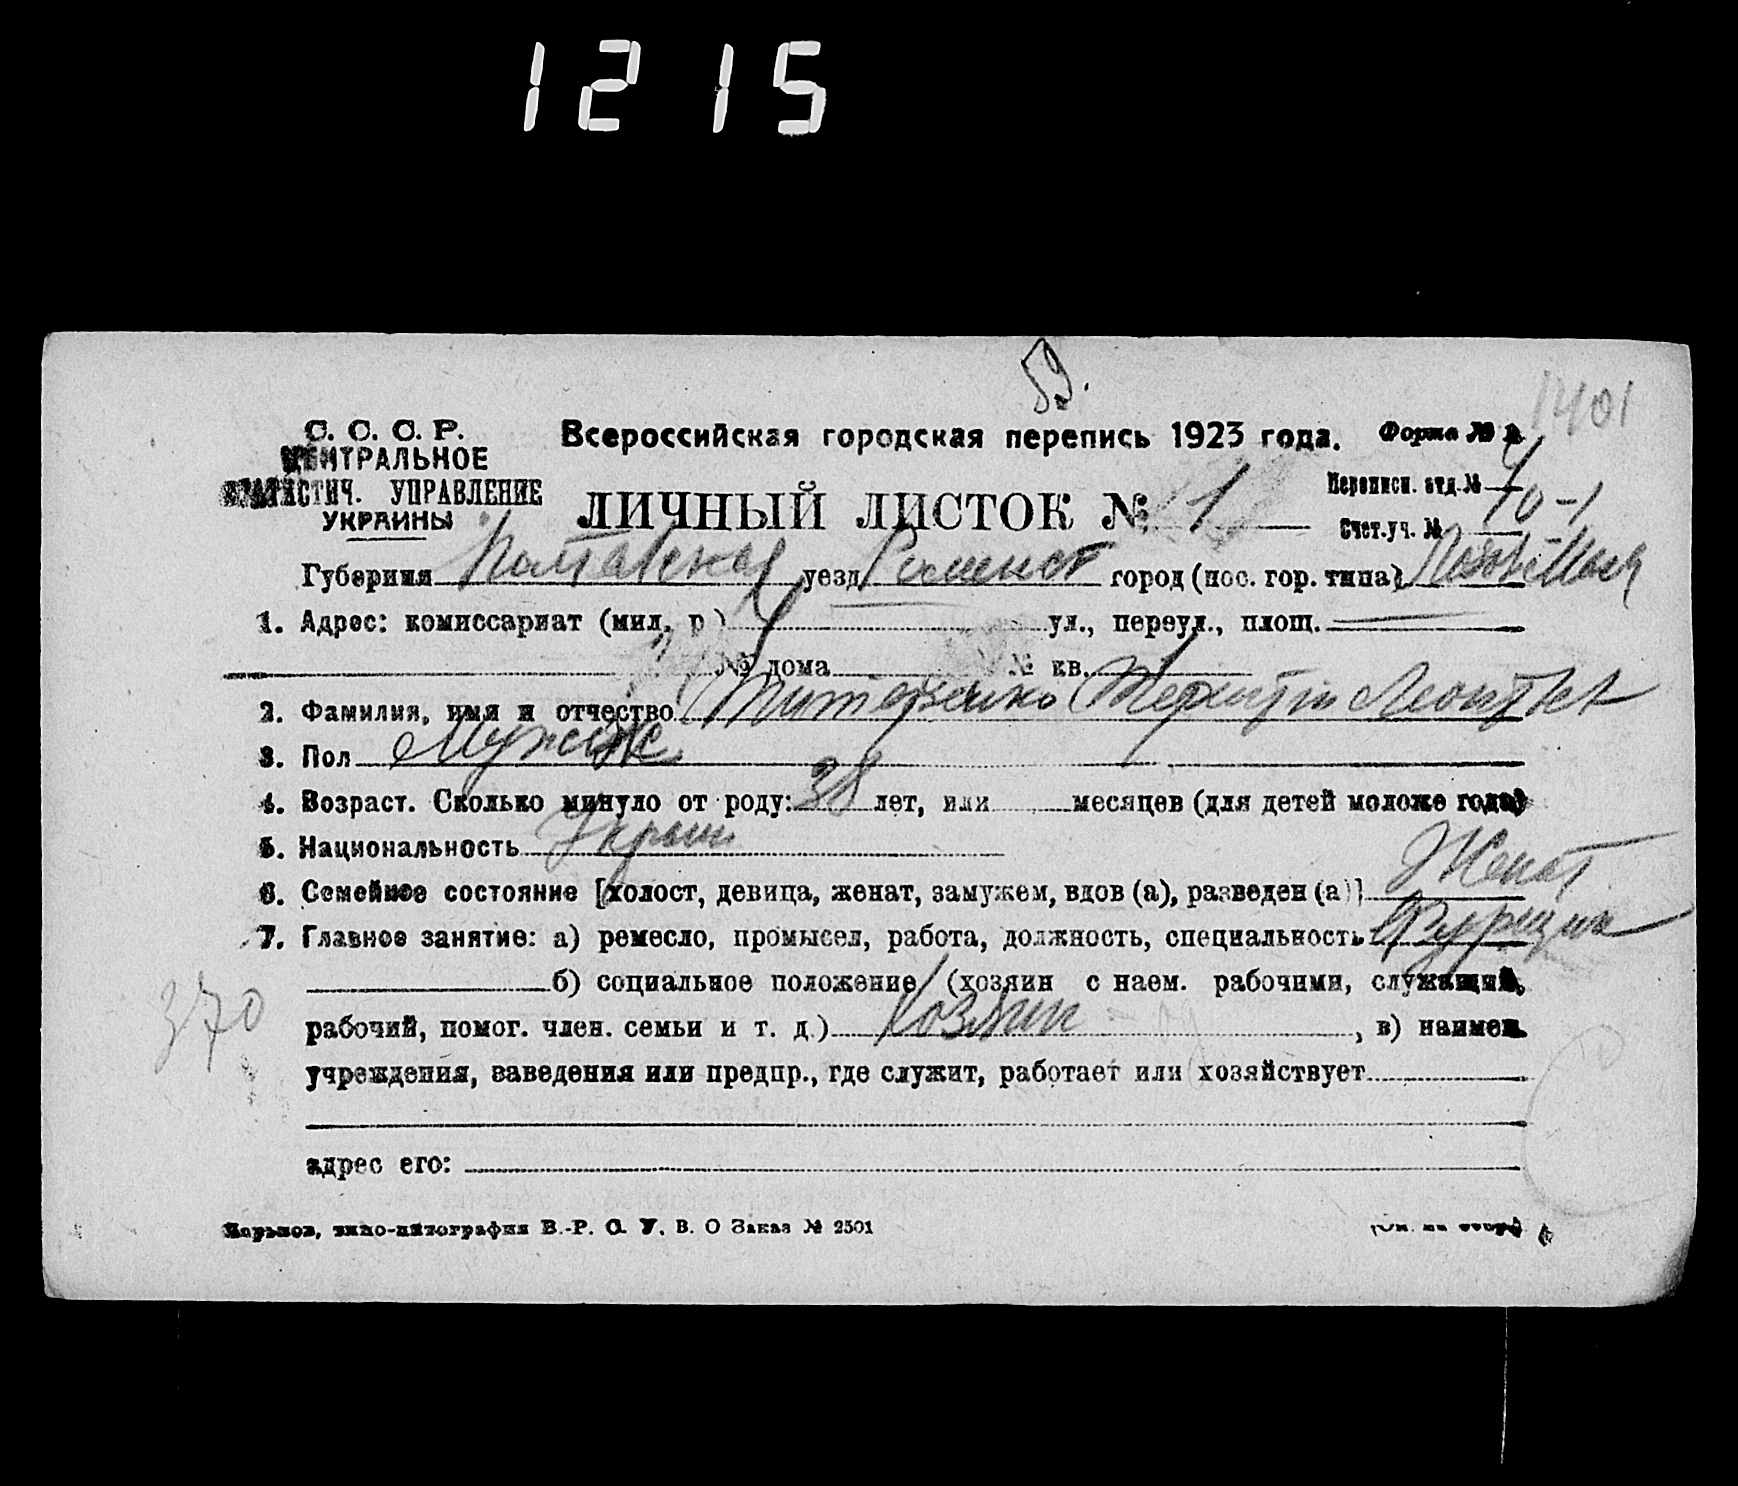 1215
59.
1401
С. С. С. Р.
ЦЕНТРАЛЬНОЕ
СТАТИСТИЧ. УПРАВЛЕНИЕ
УКРАИНЫ
Всероссийская городская перепись 1923 года.
Форма №
ЛИЧНЫЙ ЛИСТОК № 1
Переписн. отд. № 4
Счет.-уч. № 10-1
Губерния Полтавская уезд Роменск город (пос. гор. типа)
1. Адрес: комиссариат (мил. р.) 4 ул., переул., площ.
№ дома № кв.
2. Фамилия, имя и отчество
3. Пол Мужск
4. Возраст. Сколько минуло от роду: 38 лет, или месяцев (для детей моложе года)
5. Национальность Украин
6. Семейное состояние [холост, девица, женат, замужем, вдов (а), разведен (а)] Женат
7. Главное занятие: а) ремесло, промысел, работа, должность, специальность
б) социальное положение (хозяин с наем. рабочими, служащий,
рабочий, помог. член. семьи и т. д.) Хозяин, в) наимен.
учреждения, заведения или предпр., где служит, работает или хозяйствует
адрес его:
370
Харьков, типо-литография В.-Р. С. У. В. О Заказ № 2501